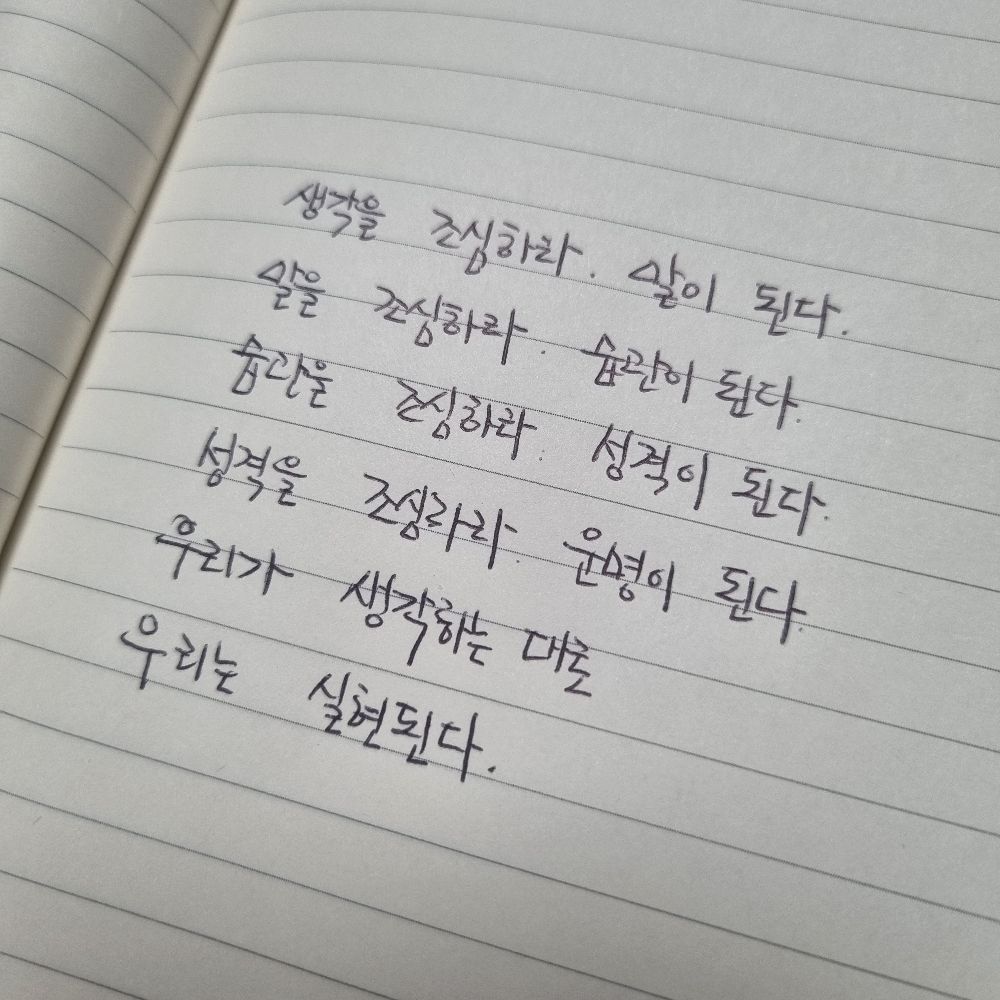 생각을 조심하라. 말이 된다.
말을 조심하라. 습관이 된다.
습관을 조심하라. 성격이 된다.
성격을 조심라라. 운명이 된다.
우리가 생각하는 대로
우리는 실현된다.